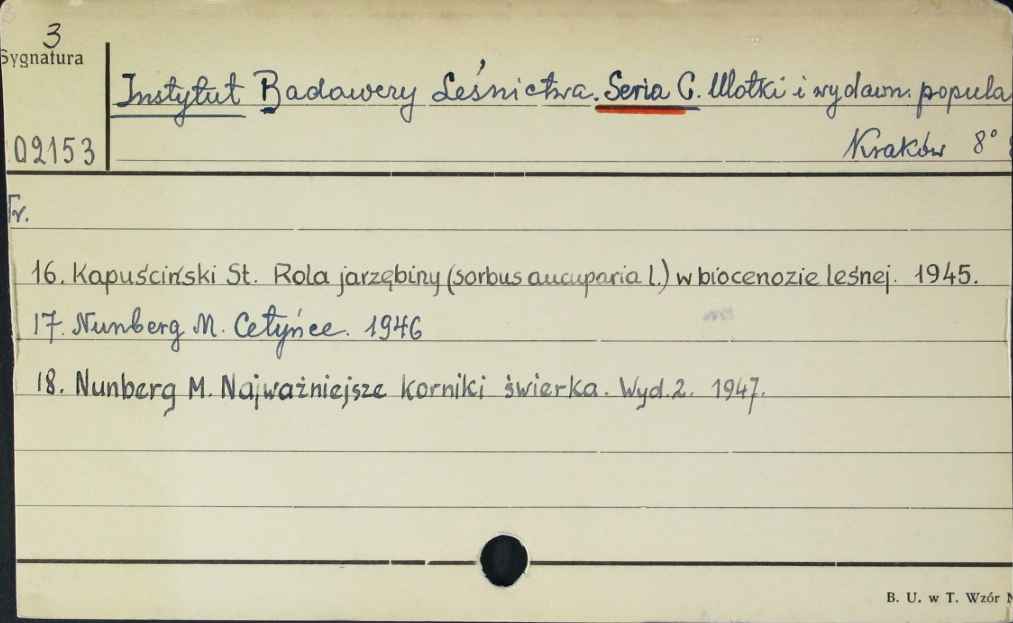 3
Sygnatura
Instytut Badawczy Leśnictwa. Seria C. Ulotki i wydawn. popula
02153
Kraków 8°
Tr.
16. Kapuściński St. Rola jarzębiny (sorbus aucuparia l.) w biocenozie leśnej. 1945.
17. Nunberg M. Cetyńce. 1946
18. Nunberg M. Najważniejsze korniki świerka. Wyd. 2. 1947.
B. U. w T. Wzór N